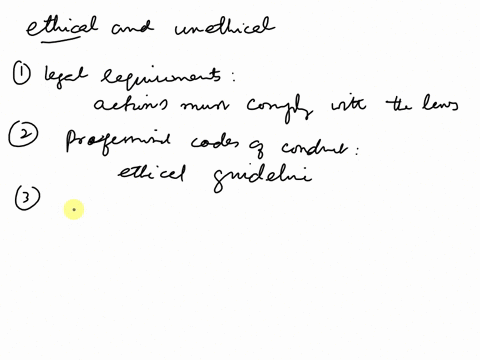 ethical and unethical
① legal requirements:
actions must comply with the laws
② Professional codes of conduct:
ethical guideline
③